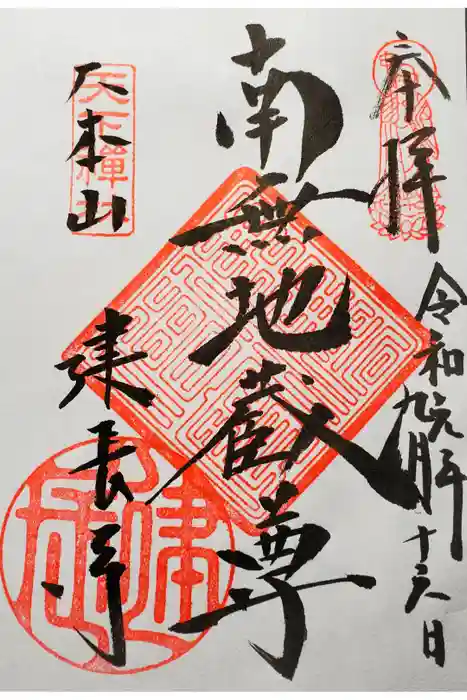 奉拝
令和元年
九月十六日
南無地蔵尊
天下禪林
大本山
建長寺